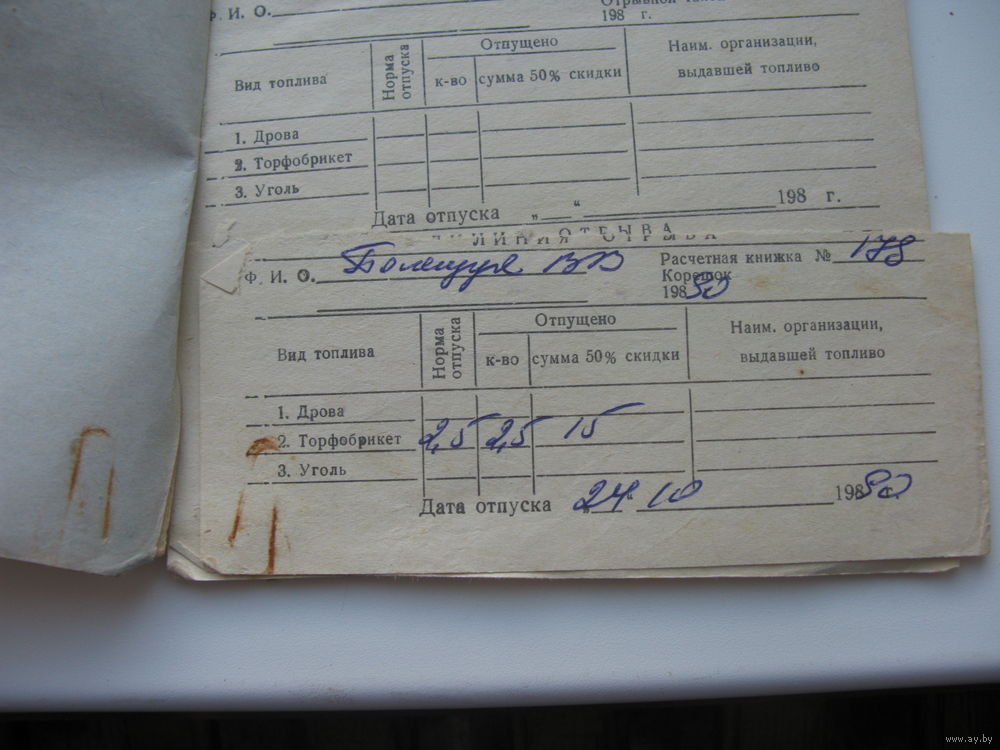 Ф. И. О.
198 г.
Вид топлива Норма отпуска Отпущено Наим. организации,
к-во сумма 50% скидки выдавшей топливо
1. Дрова
2. Торфобрикет
3. Уголь
Дата отпуска „ “ 198 г.
ЛИНИЯ ОТРЫВА
Ф. И. О. ВВ Расчетная книжка № 178
Корешок
198
Вид топлива Норма отпуска Отпущено Наим. организации,
к-во сумма 50% скидки выдавшей топливо
1. Дрова
2. Торфобрикет 2,5 2,5 15
3. Уголь
Дата отпуска „24“ 10 198 г.
www.ay.by